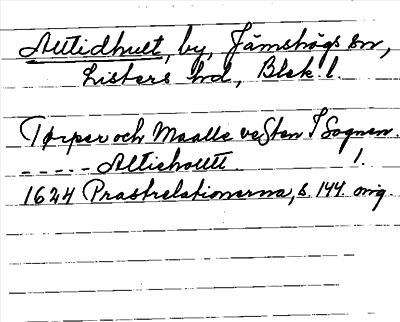 Alltidhult, by, Jämshögs sn,
Listers hd, Blek. l.
Torper och Maalle vesten I Sognen.
----- Altieholtt 1.
1624 Præstrelationerna, s. 144. orig.